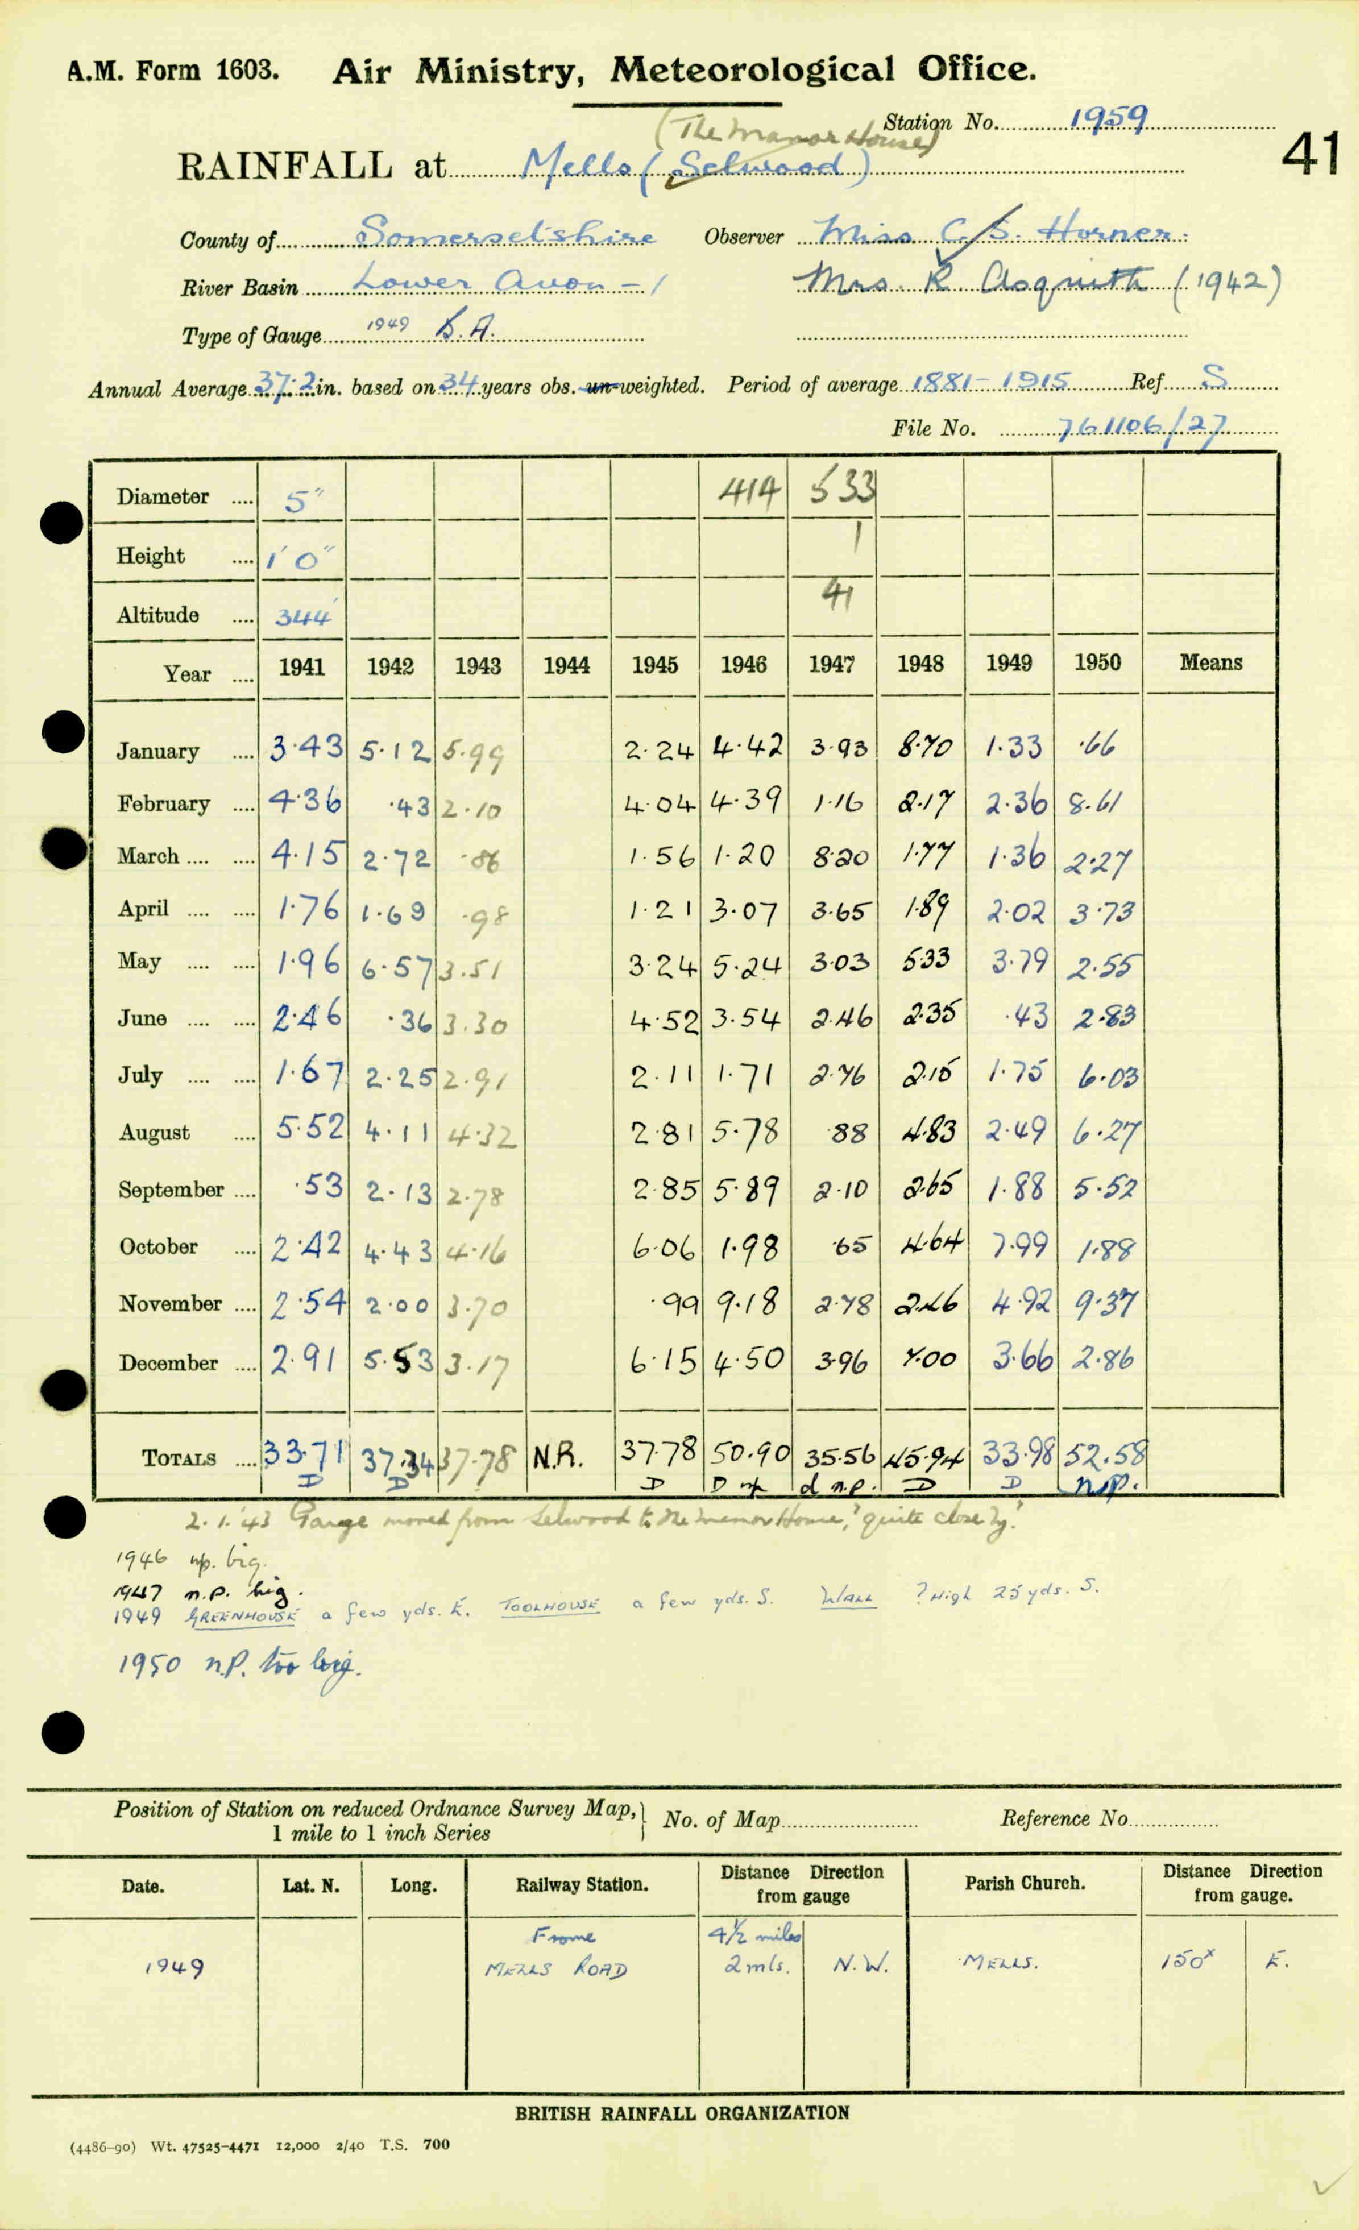 A.M. Form 1603. Air Ministry, Meteorological Office.
Station No. 1959
41
(The Manor House)
RAINFALL at Mells (Selwood)
County of Somersetshire Observer Miss C. S. Horner.
River Basin Lower Avon - 1 Mrs. K Asquith (1942)
Type of Gauge 1949 S.A.
Annual Average 37.2 in. based on 34 years obs. un-weighted. Period of average 1881-1915 Ref. S
File No. 761106/27
Diameter .... 5" 414 533
Height .... 1' 0" 1
Altitude .... 344' 41
Year .... 1941 1942 1943 1944 1945 1946 1947 1948 1949 1950 Means
January .... 3.43 5.12 5.99 2.24 4.42 3.93 8.70 1.33 .66
February .... 4.36 .43 2.10 4.04 4.39 1.16 2.17 2.36 8.61
March .... .... 4.15 2.72 .86 1.56 1.20 8.20 1.77 1.36 2.27
April .... .... 1.76 1.69 .98 1.21 3.07 3.65 1.89 2.02 3.73
May .... .... 1.96 6.57 3.51 3.24 5.24 3.03 5.33 3.79 2.55
June .... .... 2.46 .36 3.30 4.52 3.54 2.46 2.35 .43 2.83
July .... .... 1.67 2.25 2.91 2.11 1.71 2.76 2.15 1.75 6.03
August .... 5.52 4.11 4.32 2.81 5.78 .88 4.83 2.49 6.27
September .... .53 2.13 2.78 2.85 5.89 2.10 2.65 1.88 5.52
October .... 2.42 4.43 4.16 6.06 1.98 .65 4.64 7.99 1.88
November .... 2.54 2.00 3.70 .99 9.18 2.78 2.46 4.92 9.37
December .... 2.91 5.53 3.17 6.15 4.50 3.96 7.00 3.66 2.86
TOTALS .... 33.71 37.34 37.78 N.R. 37.78 50.90 35.56 45.94 33.98 52.58
D D D D np d n.p. D D n.p.
2.1.43 Gauge moved from Selwood to The Manor House, "quite close by."
1946 np. big.
1947 n.p. big.
1949 GREENHOUSE a few yds. E. TOOLHOUSE a few yds. S. WALL ? high 25 yds. S.
1950 n.p. too big.
Position of Station on reduced Ordnance Survey Map, 1 mile to 1 inch Series } No. of Map Reference No.
Date. Lat. N. Long. Railway Station. Distance Direction from gauge Parish Church. Distance Direction from gauge.
Frome 4½ miles
1949 MELLS ROAD 2 mls. N.W. MELLS. 150x E.
BRITISH RAINFALL ORGANIZATION
(4486-90) Wt. 47525-4471 12,000 2/40 T.S. 700